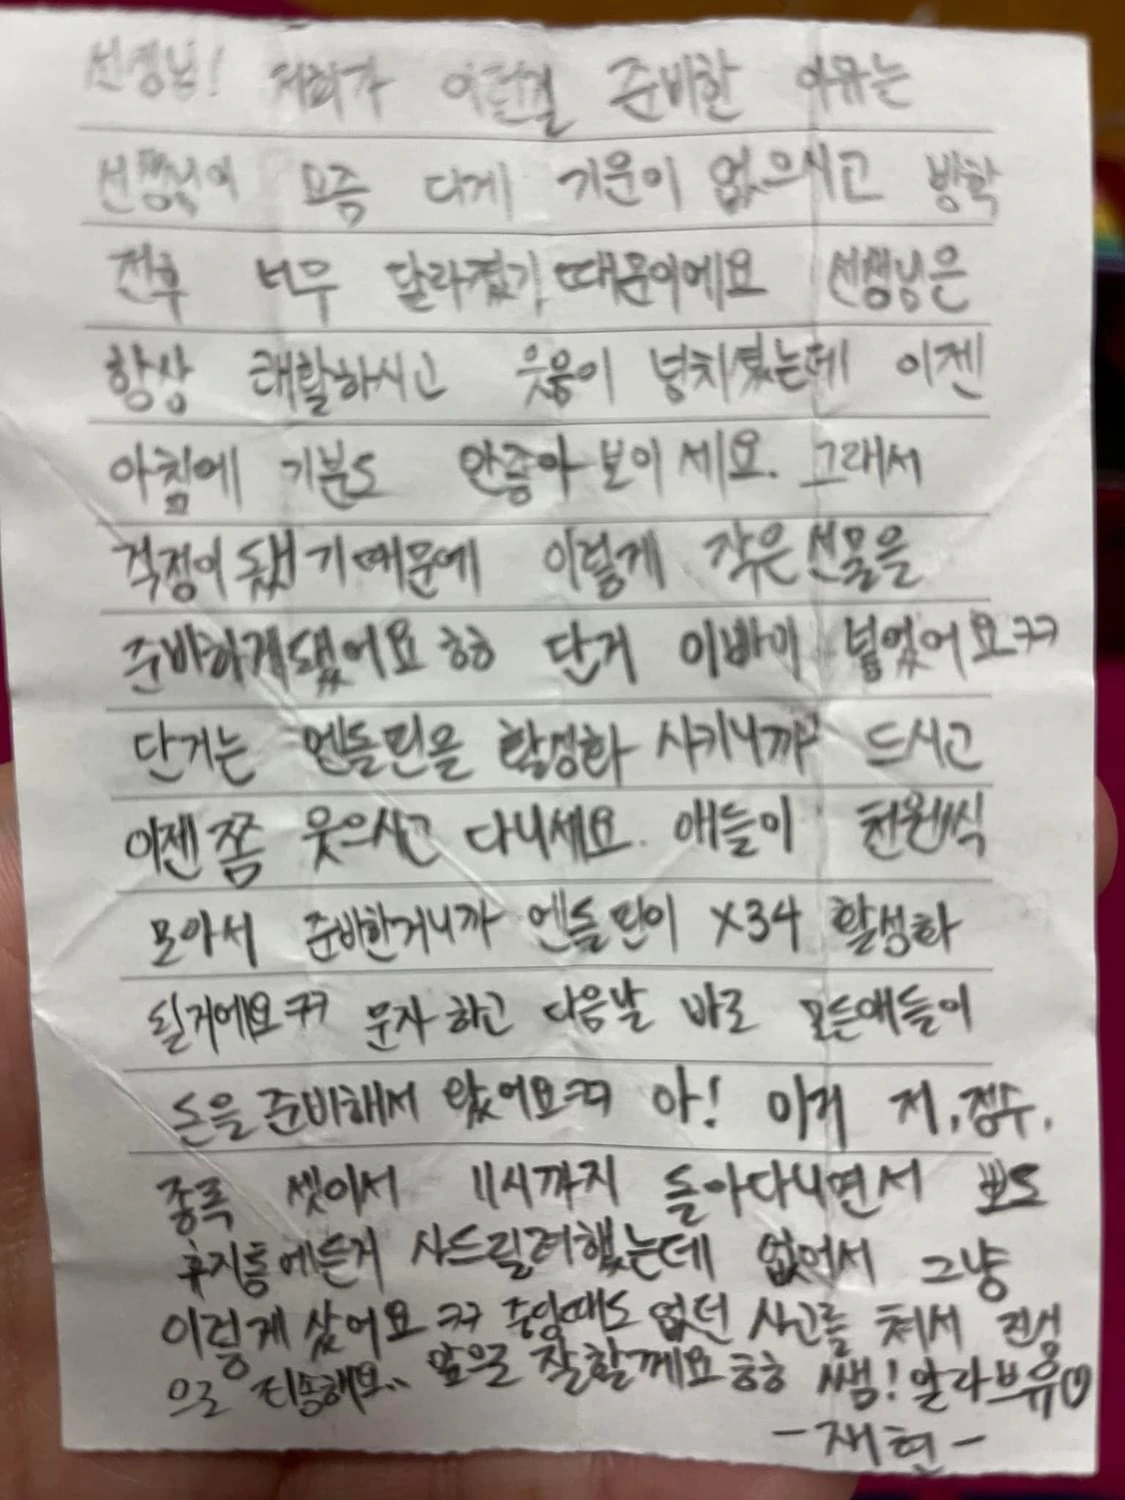 선생님! 저희가 이런걸 준비한 이유는
선생님이 요즘 되게 기운이 없으시고 방학
전후 너무 달라졌기 때문이에요 선생님은
항상 쾌활하시고 웃음이 넘치셨는데 이젠
아침에 기분도 안좋아 보이세요. 그래서
걱정이 됐기때문에 이렇게 작은 선물을
준비하게됐어요 ㅎㅎ 단거 이빠이 넣었어요ㅋㅋ
단거는 엔돌핀을 활성화 시키니까 드시고
이젠 쫌 웃으시고 다니세요. 애들이 천원씩
모아서 준비한거니까 엔돌핀이 X34 활성화
될거에요ㅋㅋ 문자 하고 다음날 바로 모든애들이
돈을 준비해서 왔어요ㅋㅋ 아! 이거 저, 정수,
종록 셋이서 11시까지 돌아다니면서 뽀또
휴지통에든거 사드릴려했는데 없어서 그냥
이렇게 샀어요 ㅋㅋ 중일때도 없던 사고를 쳐서 진심
으로 죄송해요.. 앞으로 잘할께요 ㅎㅎ 쌤! 알라브유♡
-재현-